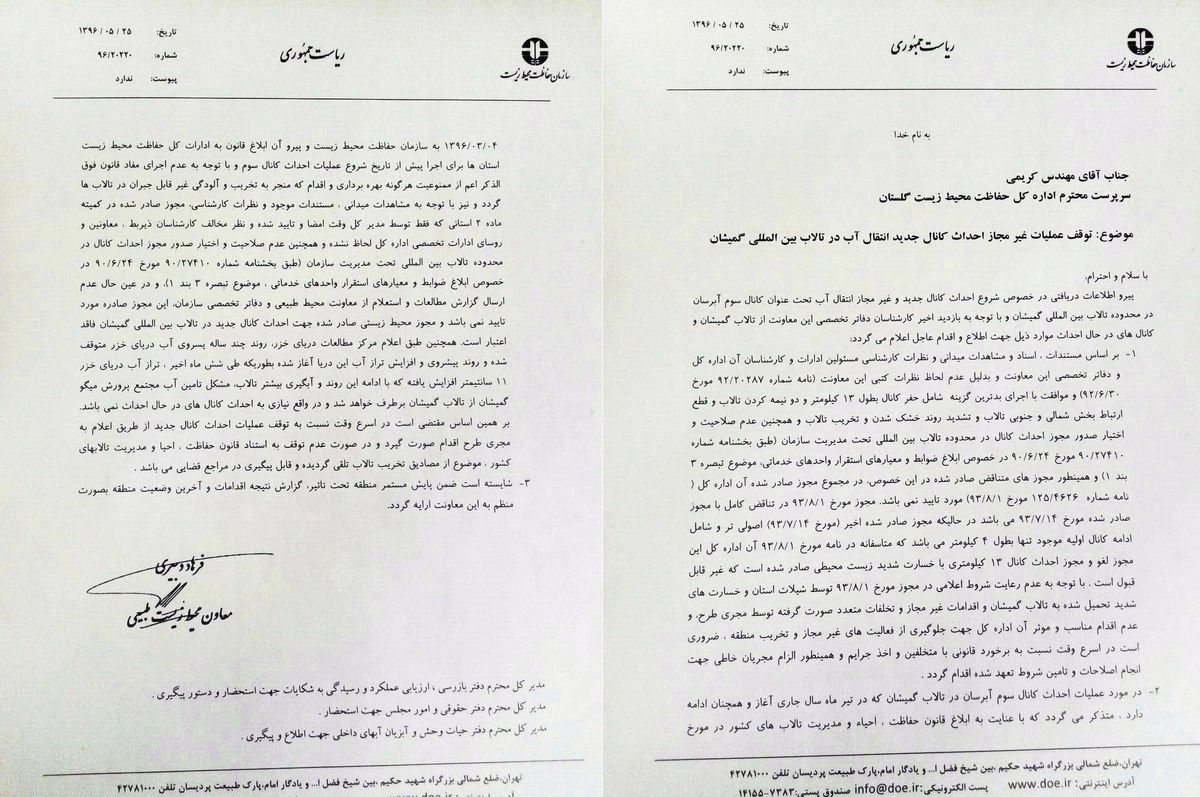 سازمان حفاظت محیط زیست
ریاست جمهوری
تاریخ: ۲۵ / ۰۵ / ۱۳۹۶
شماره: ۹۶/۲۰۲۲۰
پیوست: ندارد
به نام خدا
جناب آقای مهندس کریمی
سرپرست محترم اداره کل حفاظت محیط زیست گلستان
موضوع: توقف عملیات غیر مجاز احداث کانال جدید انتقال آب در تالاب بین المللی گمیشان
با سلام و احترام،
پیرو اطلاعات دریافتی در خصوص شروع احداث کانال جدید و غیر مجاز انتقال آب تحت عنوان کانال سوم آبرسان
در محدوده تالاب بین المللی گمیشان و با توجه به بازدید اخیر کارشناسان دفاتر تخصصی این معاونت از تالاب گمیشان و
کانال های در حال احداث موارد ذیل جهت اطلاع و اقدام عاجل اعلام می گردد:
۱- بر اساس مستندات ، اسناد و مشاهدات میدانی و نظرات کارشناسی مسئولین ادارات و کارشناسان آن اداره کل
و دفاتر تخصصی این معاونت و بدلیل عدم لحاظ نظرات کتبی این معاونت (نامه شماره ۹۲/۲۰۲۸۷ مورخ
۹۲/۶/۳۰) و موافقت با اجرای بدترین گزینه شامل حفر کانال بطول ۱۳ کیلومتر و دو نیمه کردن تالاب و قطع
ارتباط بخش شمالی و جنوبی تالاب و تشدید روند خشک شدن و تخریب تالاب و همچنین عدم صلاحیت و
اختیار صدور مجوز احداث کانال در محدوده تالاب بین المللی تحت مدیریت سازمان (طبق بخشنامه شماره
۹۰/۲۷۴۱۰ مورخ ۹۰/۶/۲۴ در خصوص ابلاغ ضوابط و معیارهای استقرار واحدهای خدماتی، موضوع تبصره ۳
بند ۱) و همینطور مجوز های متناقض صادر شده در این خصوص، در مجموع مجوز صادر شده آن اداره کل (
نامه شماره ۱۲۵/۴۶۲۶ مورخ ۹۳/۸/۱) مورد تایید نمی باشد. مجوز مورخ ۹۳/۸/۱ در تناقض کامل با مجوز
صادر شده مورخ ۹۳/۷/۱۴ می باشد در حالیکه مجوز صادر شده اخیر (مورخ ۹۳/۷/۱۴) اصولی تر و شامل
ادامه کانال اولیه موجود تنها بطول ۴ کیلومتر می باشد که متاسفانه در نامه مورخ ۹۳/۸/۱ آن اداره کل این
مجوز لغو و مجوز احداث کانال ۱۳ کیلومتری با خسارت شدید زیست محیطی صادر شده است که غیر قابل
قبول است . با توجه به عدم رعایت شروط اعلامی در مجوز مورخ ۹۳/۸/۱ توسط شیلات استان و خسارت های
شدید تحمیل شده به تالاب گمیشان و اقدامات غیر مجاز و تخلفات متعدد صورت گرفته توسط مجری طرح، و
عدم اقدام مناسب و موثر آن اداره کل جهت جلوگیری از فعالیت های غیر مجاز و تخریب منطقه ، ضروری
است در اسرع وقت نسبت به برخورد قانونی با متخلفین و اخذ جرایم و همینطور الزام مجریان خاطی جهت
انجام اصلاحات و تامین شروط تعهد شده اقدام گردد .
۲- در مورد عملیات احداث کانال سوم آبرسان در تالاب گمیشان که در تیر ماه سال جاری آغاز و همچنان ادامه
دارد ، متذکر می گردد که با عنایت به ابلاغ قانون حفاظت ، احیاء و مدیریت تالاب های کشور در مورخ
تهران،ضلع شمالی بزرگراه شهید حکیم ،بین شیخ فضل ا... و یادگار امام،پارک طبیعت پردیسان تلفن ۴۲۷۸۱۰۰۰
آدرس اینترنتی: www.doe.ir پست الکترونیکی: info@doe.ir صندوق پستی: ۷۳۸۳-۱۴۱۵۵
سازمان حفاظت محیط زیست
ریاست جمهوری
تاریخ: ۲۵ / ۰۵ / ۱۳۹۶
شماره: ۹۶/۲۰۲۲۰
پیوست: ندارد
۱۳۹۶/۰۳/۰۴ به سازمان حفاظت محیط زیست و پیرو آن ابلاغ قانون به ادارات کل حفاظت محیط زیست
استان ها برای اجرا پیش از تاریخ شروع عملیات احداث کانال سوم و با توجه به عدم اجرای مفاد قانون فوق
الذکر اعم از ممنوعیت هرگونه بهره برداری و اقدام که منجر به تخریب و آلودگی غیر قابل جبران در تالاب ها
گردد و نیز با توجه به مشاهدات میدانی ، مستندات موجود و نظرات کارشناسی، مجوز صادر شده در کمیته
ماده ۲ استانی که فقط توسط مدیر کل وقت امضا و تایید شده و نظر مخالف کارشناسان ذیربط ، معاونین و
روسای ادارات تخصصی اداره کل لحاظ نشده و همچنین عدم صلاحیت و اختیار صدور مجوز احداث کانال در
محدوده تالاب بین المللی تحت مدیریت سازمان (طبق بخشنامه شماره ۹۰/۲۷۴۱۰ مورخ ۹۰/۶/۲۴ در
خصوص ابلاغ ضوابط و معیارهای استقرار واحدهای خدماتی ، موضوع تبصره ۳ بند ۱)، و در عین حال عدم
ارسال گزارش مطالعات و استعلام از معاونت محیط طبیعی و دفاتر تخصصی سازمان، این مجوز صادره مورد
تایید نمی باشد و مجوز محیط زیستی صادر شده جهت احداث کانال جدید در تالاب بین المللی گمیشان فاقد
اعتبار است. همچنین طبق اعلام مرکز مطالعات دریای خزر، روند چند ساله پسروی آب دریای خزر متوقف
شده و روند پیشروی و افزایش تراز آب این دریا آغاز شده بطوریکه طی شش ماه اخیر ، تراز آب دریای خزر
۱۱ سانتیمتر افزایش یافته که با ادامه این روند و آبگیری بیشتر تالاب، مشکل تامین آب مجتمع پرورش میگو
گمیشان از تالاب گمیشان برطرف خواهد شد و در واقع نیازی به احداث کانال های در حال احداث نمی باشد.
بر همین اساس مقتضی است در اسرع وقت نسبت به توقف عملیات احداث کانال جدید از طریق اعلام به
مجری طرح اقدام صورت گیرد و در صورت عدم توقف به استناد قانون حفاظت ، احیا و مدیریت تالابهای
کشور ، موضوع از مصادیق تخریب تالاب تلقی گردیده و قابل پیگیری در مراجع قضایی می باشد .
۳- شایسته است ضمن پایش مستمر منطقه تحت تاثیر، گزارش نتیجه اقدامات و آخرین وضعیت منطقه بصورت
منظم به این معاونت ارایه گردد.
فرهاد دبیری
معاون محیط زیست طبیعی
مدیر کل محترم دفتر بازرسی ، ارزیابی عملکرد و رسیدگی به شکایات جهت استحضار و دستور پیگیری .
مدیر کل محترم دفتر حقوقی و امور مجلس جهت استحضار .
مدیر کل محترم دفتر حیات وحش و آبزیان آبهای داخلی جهت اطلاع و پیگیری .
تهران،ضلع شمالی بزرگراه شهید حکیم ،بین شیخ فضل ا... و یادگار امام،پارک طبیعت پردیسان تلفن ۴۲۷۸۱۰۰۰